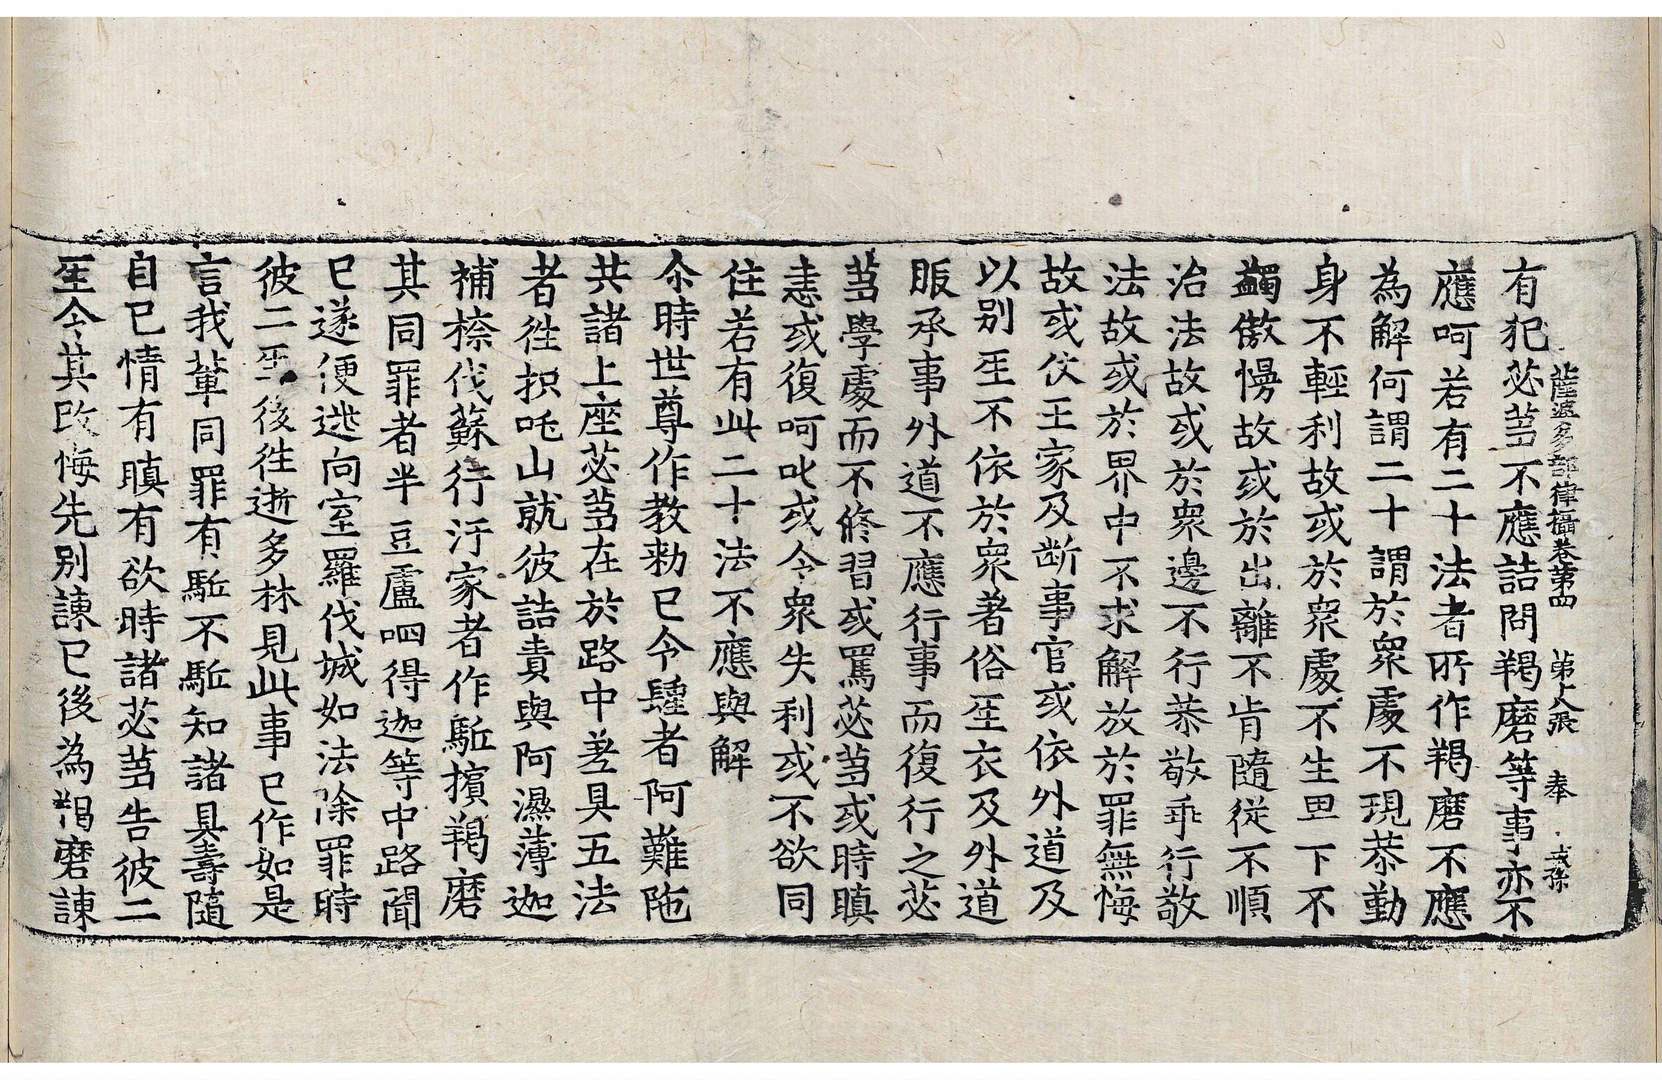 薩婆多部律攝卷第四 第十八張 奉
有犯苾芻不應詰問羯磨等事亦不
應呵若有二十法者所作羯磨不應
為解何謂二十謂於眾處不現恭勤
身不輕利故或於眾處不生下不
蠲傲慢故或於出離不肯隨從不順
治法故或於眾邊不行恭敬乖行敬
法故或於界中不求解放於罪無悔
故或伏王家及斷事官或依外道及
以別𤯔不依於眾著俗𤯔衣及外道
服承事外道不應行事而復行之苾
芻學處而不修習或罵苾芻或時瞋
恚或復呵叱或令眾失利或不欲同
住若有此二十法不應與解
尒時世尊作教勑已令者阿難陁
共諸上座苾芻在於路中差具五法
者往抧吒山就彼詰責與阿濕薄迦
補㮈伐蘇行汙家者作駈擯羯磨
其同罪者半豆盧呬得迦等中路聞
已遂便逃向室羅伐城如法除罪時
彼二𤯔後往逝多林見此事已作如是
言我輩同罪有駈不駈知諸具壽隨
自已情有瞋有欲時諸苾芻告彼二
𤯔令其改悔先別諫已後為羯磨諫